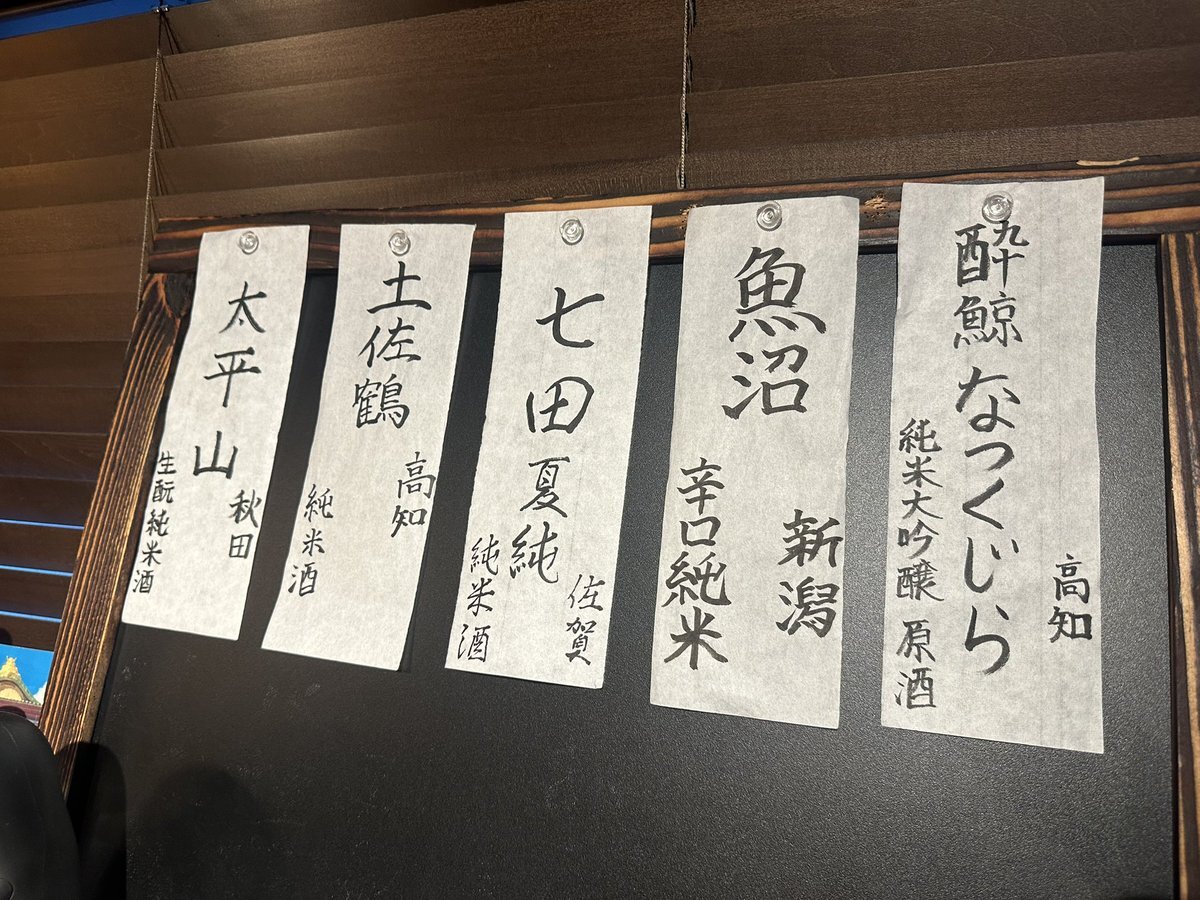 酔鯨 なつくじら
高知
純米大吟醸 原酒
魚沼
新潟
辛口純米
七田 夏純
佐賀
純米酒
土佐鶴
高知
純米酒
太平山
秋田
生酛純米酒